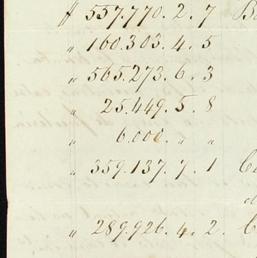 ƒ 557.770.2.7
" 160.303.4.5
" 565.273.6.3
" 25.449.5.8
" 6.000. " "
" 359.137.7.1
" 289.926.4.2.